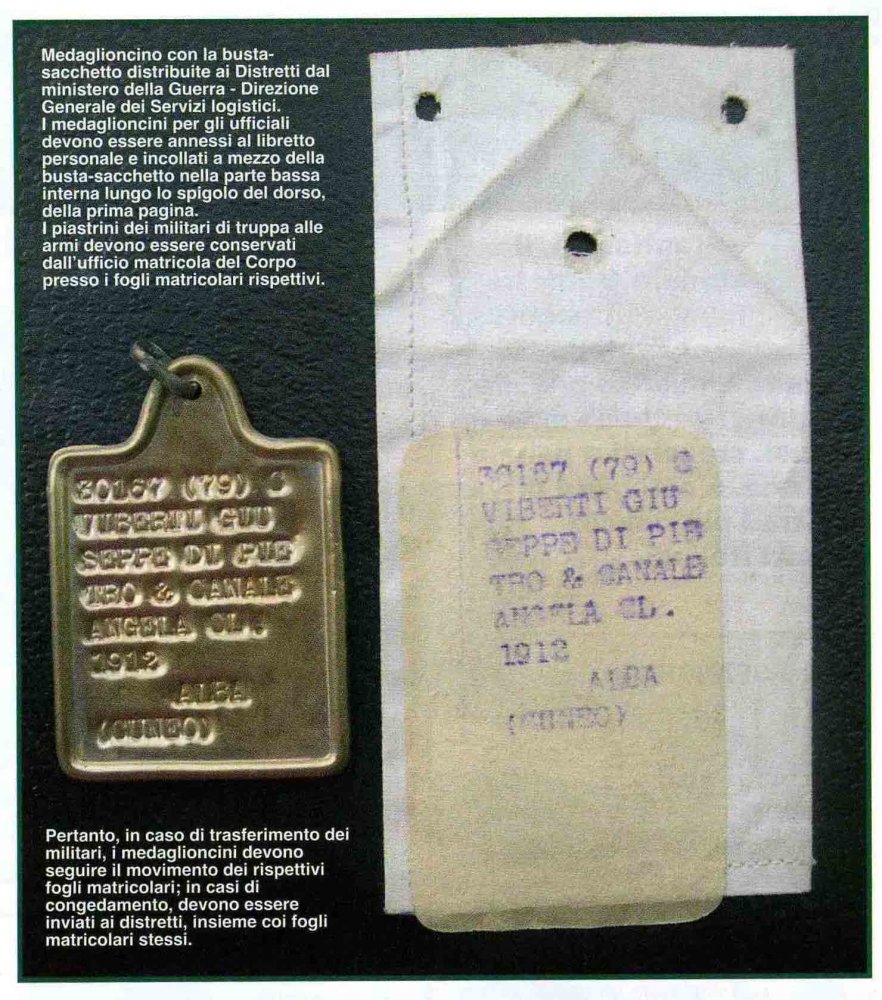 Medaglioncino con la busta-
sacchetto distribuite ai Distretti dal
ministero della Guerra - Direzione
Generale dei Servizi logistici.
I medaglioncini per gli ufficiali
devono essere annessi al libretto
personale e incollati a mezzo della
busta-sacchetto nella parte bassa
interna lungo lo spigolo del dorso,
della prima pagina.
I piastrini dei militari di truppa alle
armi devono essere conservati
dall'ufficio matricola del Corpo
presso i fogli matricolari rispettivi.
30167 (79) C
VIBERTI GIU
SEPPE DI PIE
TRO & CANALE
ANGELA CL.
1912
ALBA
(CUNEO)
30167 (79) C
VIBERTI GIU
SEPPE DI PIE
TRO & CANALE
ANGELA CL.
1912
ALBA
(CUNEO)
Pertanto, in caso di trasferimento dei
militari, i medaglioncini devono
seguire il movimento dei rispettivi
fogli matricolari; in casi di
congedamento, devono essere
inviati ai distretti, insieme coi fogli
matricolari stessi.